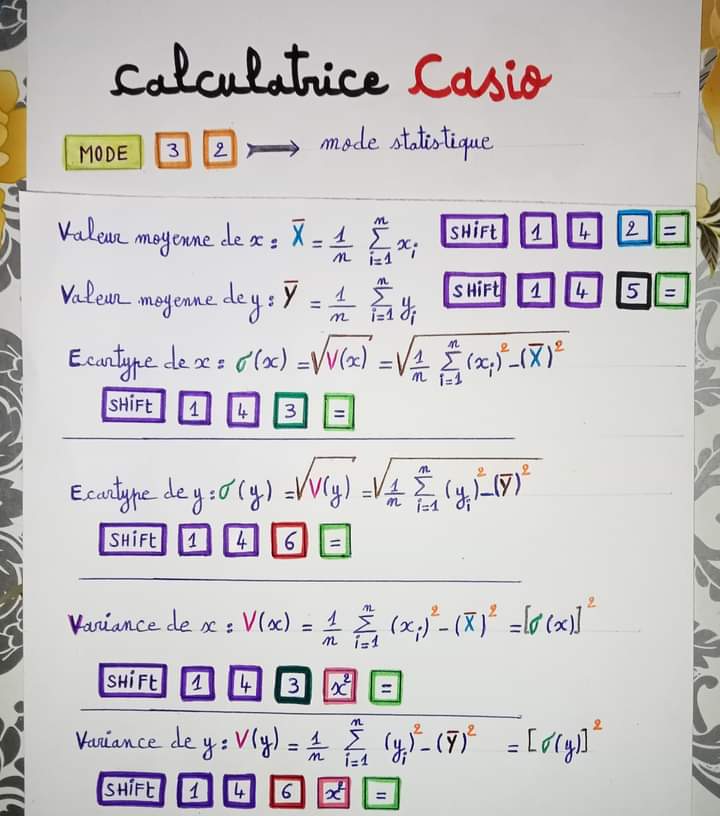 Calculatrice Casio
MODE 3 2 → mode statistique
Valeur moyenne de x : X̅ = 1/n ∑_{i=1}^{n} x_i SHiFT 1 4 2 =
Valeur moyenne de y : Y̅ = 1/n ∑_{i=1}^{n} y_i SHiFT 1 4 5 =
Ecartype de x : σ(x) = √V(x) = √(1/n ∑_{i=1}^{n} (x_i)² - (X̅)²)
SHiFT 1 4 3 =
Ecartype de y : σ(y) = √V(y) = √(1/n ∑_{i=1}^{n} (y_i)² - (Y̅)²)
SHiFT 1 4 6 =
Variance de x : V(x) = 1/n ∑_{i=1}^{n} (x_i)² - (X̅)² = [σ(x)]²
SHiFT 1 4 3 x² =
Variance de y : V(y) = 1/n ∑_{i=1}^{n} (y_i)² - (Y̅)² = [σ(y)]²
SHiFT 1 4 6 x² =